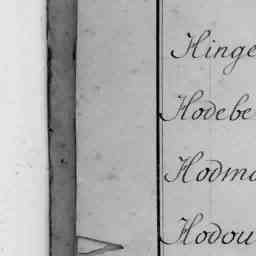 Hinge
Hodebe
Hodma
Hodou